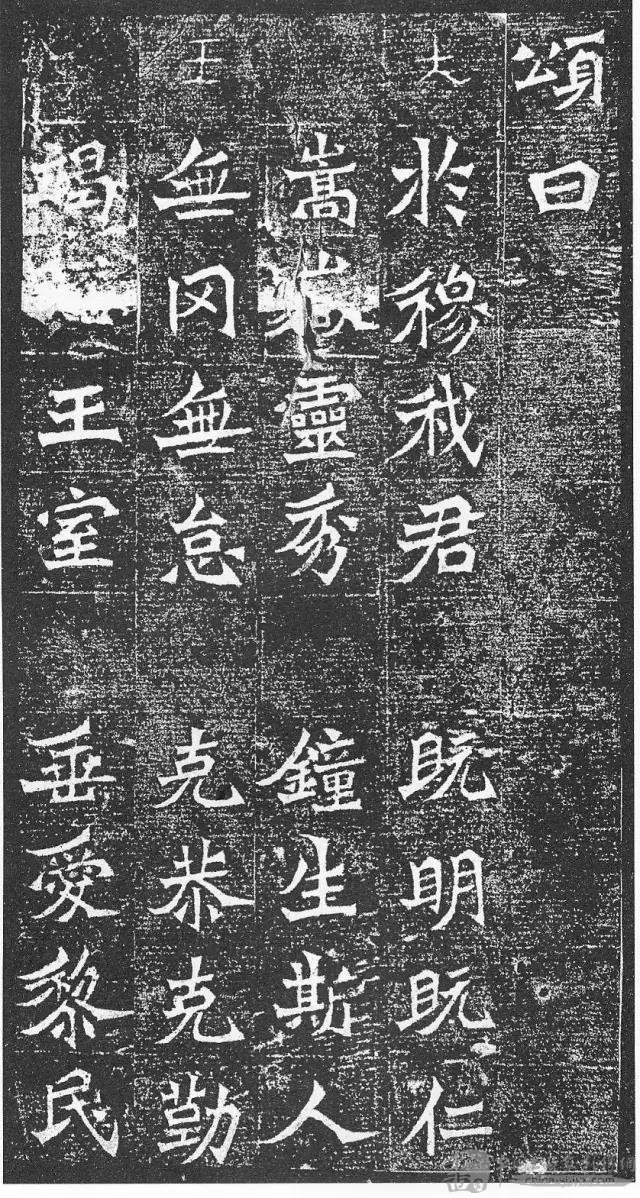 頌曰
大
於穆我君 既明既仁
嵩靈秀 鐘生斯人
王
無冈無怠 克恭克勤
竭王室 垂愛黎民
china-shjyx.com